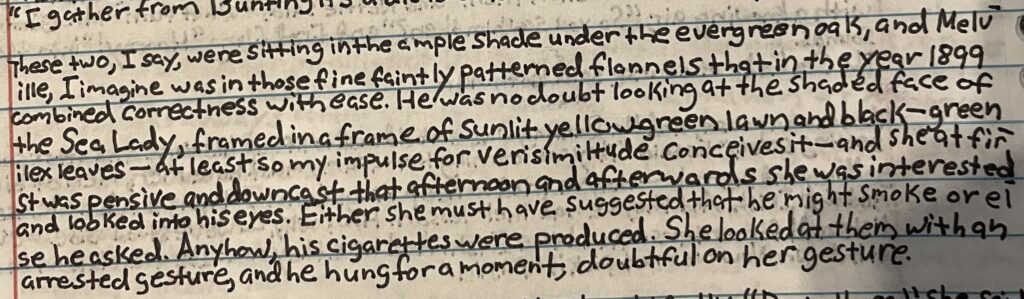 "I gather from Bunting
These two, I say, were sitting in the ample shade under the evergreen oak, and Melv
ille, I imagine was in those fine faintly patterned flannels that in the year 1899
combined correctness with ease. He was no doubt looking at the shaded face of
the Sea Lady, framed in a frame of sunlit yellowgreen lawn and black-green
ilex leaves—at least so my impulse for verisimiltude conceives it—and she at fir
st was pensive and downcast that afternoon and afterwards she was interested
and looked into his eyes. Either she must have suggested that he might smoke or el
se he asked. Anyhow, his cigarettes were produced. She looked at them with an
arrested gesture, and he hung for a moment, doubtful on her gesture.